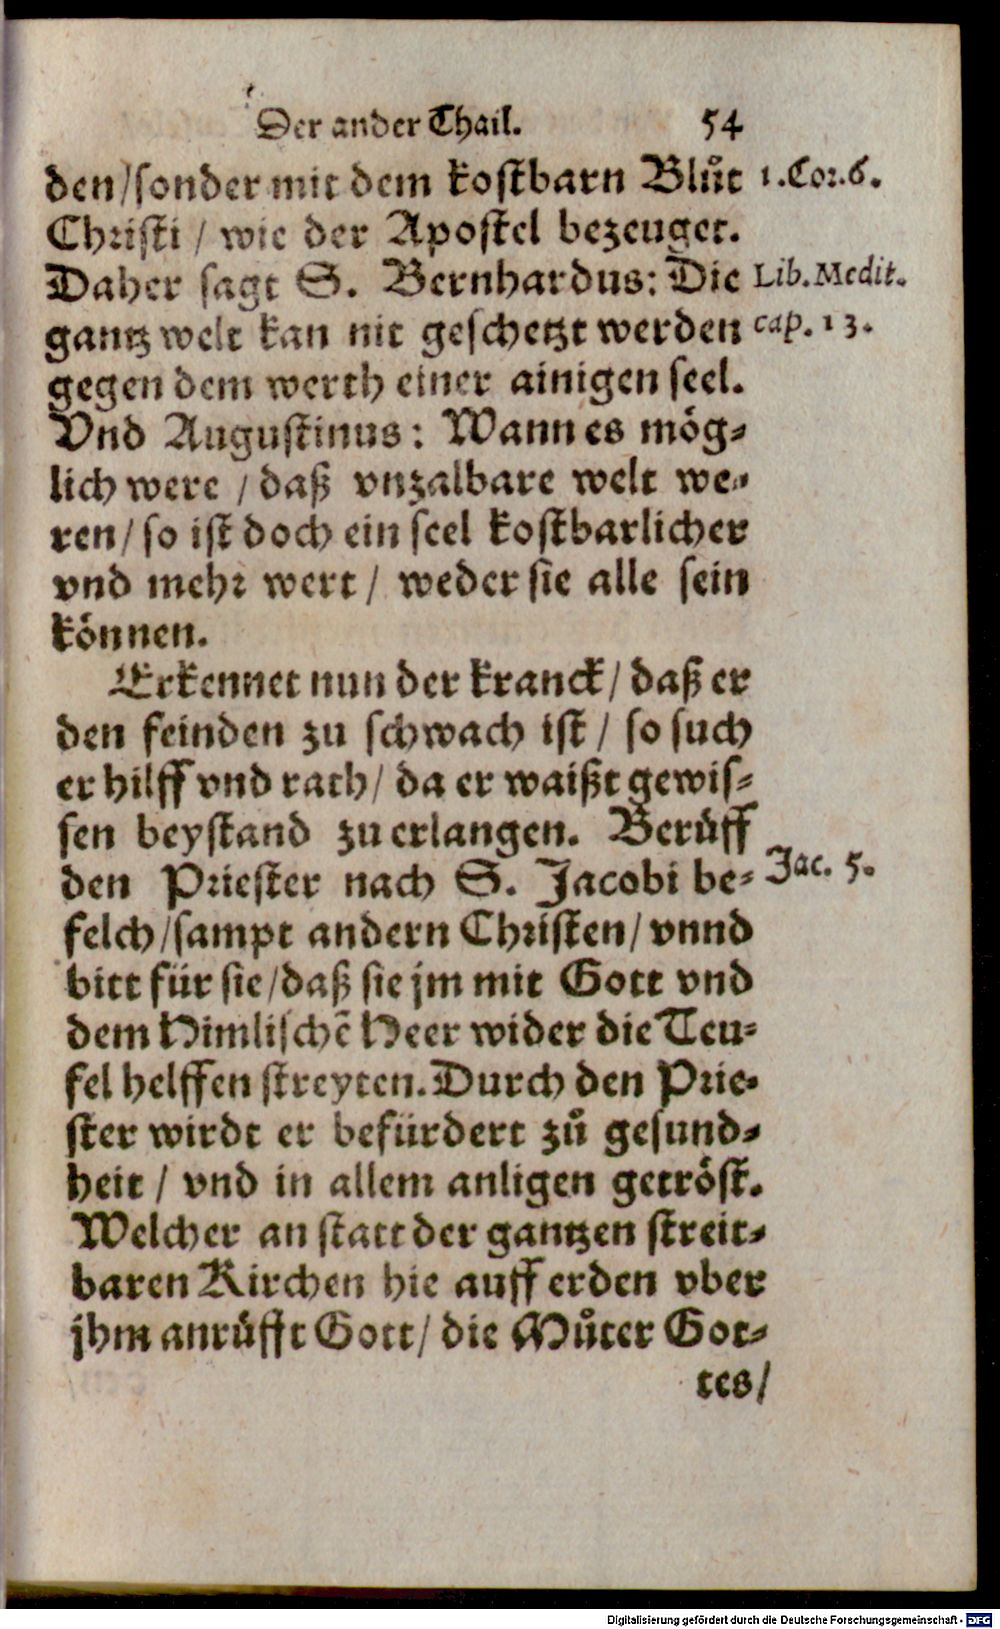 Der ander Thail. 54
den/sonder mit dem kostbarn Blůt 1.Cor.6.
Christi / wie der Apostel bezeuget.
Daher sagt S. Bernhardus: Die Lib.Medit.
gantz welt kan nit geschetzt werden cap. 13.
gegen dem werth einer ainigen seel.
Vnd Augustinus: Wann es mög-
lich were / daß vnzalbare welt we-
ren/ so ist doch ein seel kostbarlicher
vnd mehr wert / weder sie alle sein
können.
Erkennet nun der kranck/ daß er
den feinden zu schwach ist / so such
er hilff vnd rath/ da er waißt gewis-
sen beystand zu erlangen. Berüff
den Priester nach S. Jacobi be- Jac. 5.
felch/sampt andern Christen/ vnnd
bitt für sie/daß sie jm mit Gott vnd
dem Himlischē Heer wider die Teu-
fel helffen streyten. Durch den Prie-
ster wirdt er befürdert zů gesund-
heit / vnd in allem anligen getröst.
Welcher an statt der gantzen streit-
baren Kirchen hie auff erden vber
jhm anrüfft Gott/ die Můter Got-
tes/
Digitalisierung gefördert durch die Deutsche Forschungsgemeinschaft - DFG